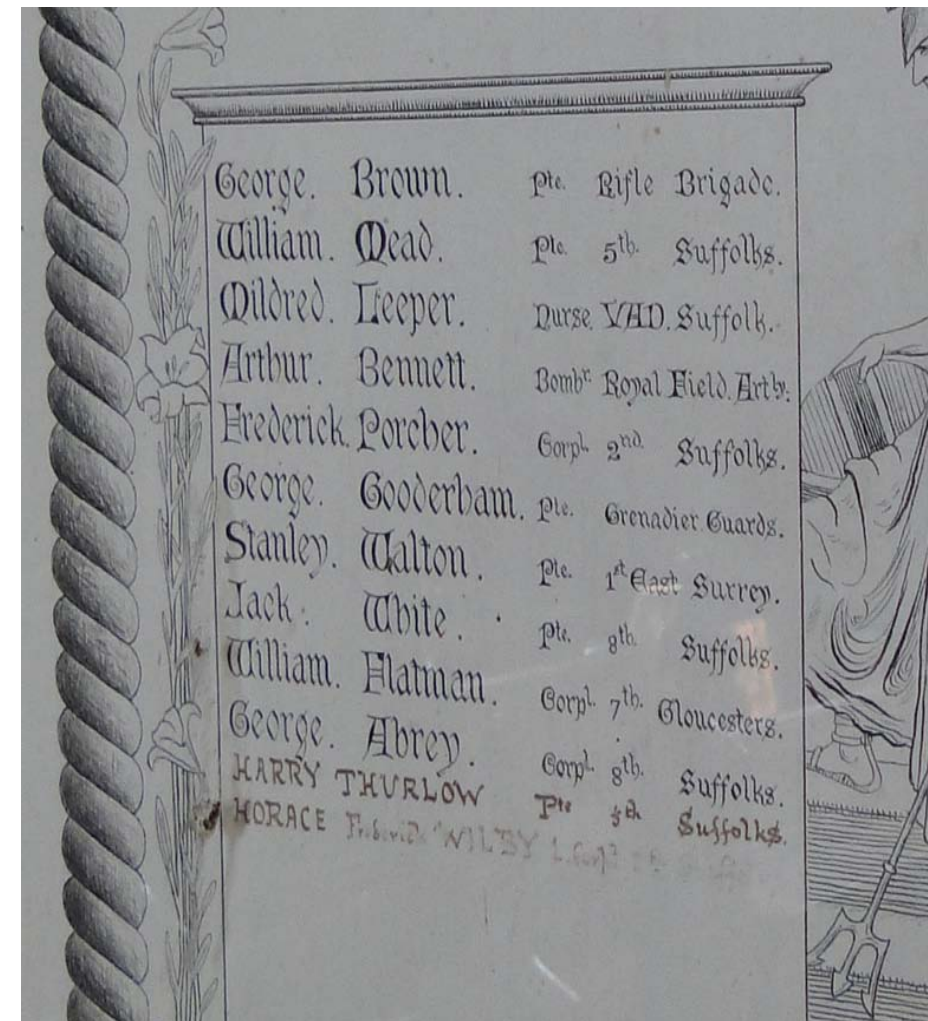 George. Brown. Pte. Rifle Brigade.
William. Mead. Pte. 5th. Suffolks.
Mildred. Leeper. Nurse. VAD. Suffolk.
Arthur. Bennett. Bombr. Royal Field. Arty.
Frederick. Porcher. Corpl. 2nd. Suffolks.
George. Gooderham. Pte. Grenadier Guards.
Stanley. Walton. Pte. 1st East Surrey.
Jack. White. Pte. 8th. Suffolks.
William. Flatman. Corpl. 7th. Gloucesters.
George. Abrey. Corpl. 8th. Suffolks.
HARRY THURLOW Pte Suffolks.
HORACE Frederick WILBY